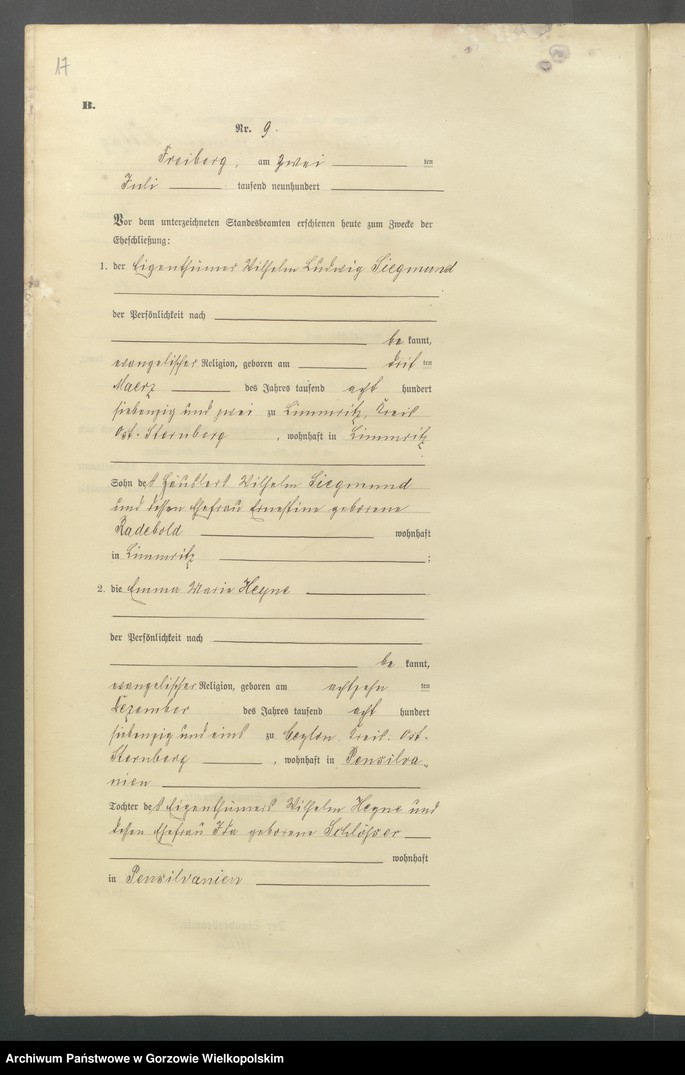 17
B.
Nr. 9.
Freiberg, am zwei ten
Juli tausend neunhundert
Vor dem unterzeichneten Standesbeamten erschienen heute zum Zwecke der
Eheschließung:
1. der Eigenthümer Wilhelm Ludwig Siegmund
der Persönlichkeit nach
be kannt,
evangelischer Religion, geboren am drit ten
Maerz des Jahres tausend acht hundert
siebenzig und zwei zu Limmritz, Kreis
Ost-Sternberg, wohnhaft in Limmritz
Sohn des Häuslers Wilhelm Siegmund
und dessen Ehefrau Ernestine geborene
Radebold wohnhaft
in Limmritz ;
2. die Emma Marie Heyne
der Persönlichkeit nach
be kannt,
evangelischer Religion, geboren am achtzehn ten
Dezember des Jahres tausend acht hundert
siebenzig und eins zu Ceylon, Kreis Ost-
Sternberg, wohnhaft in Pensilva-
nien
Tochter des Eigenthümers Wilhelm Heyne und
dessen Ehefrau Ida geborene Schlösser
wohnhaft
in Pensilvanien
Archiwum Państwowe w Gorzowie Wielkopolskim